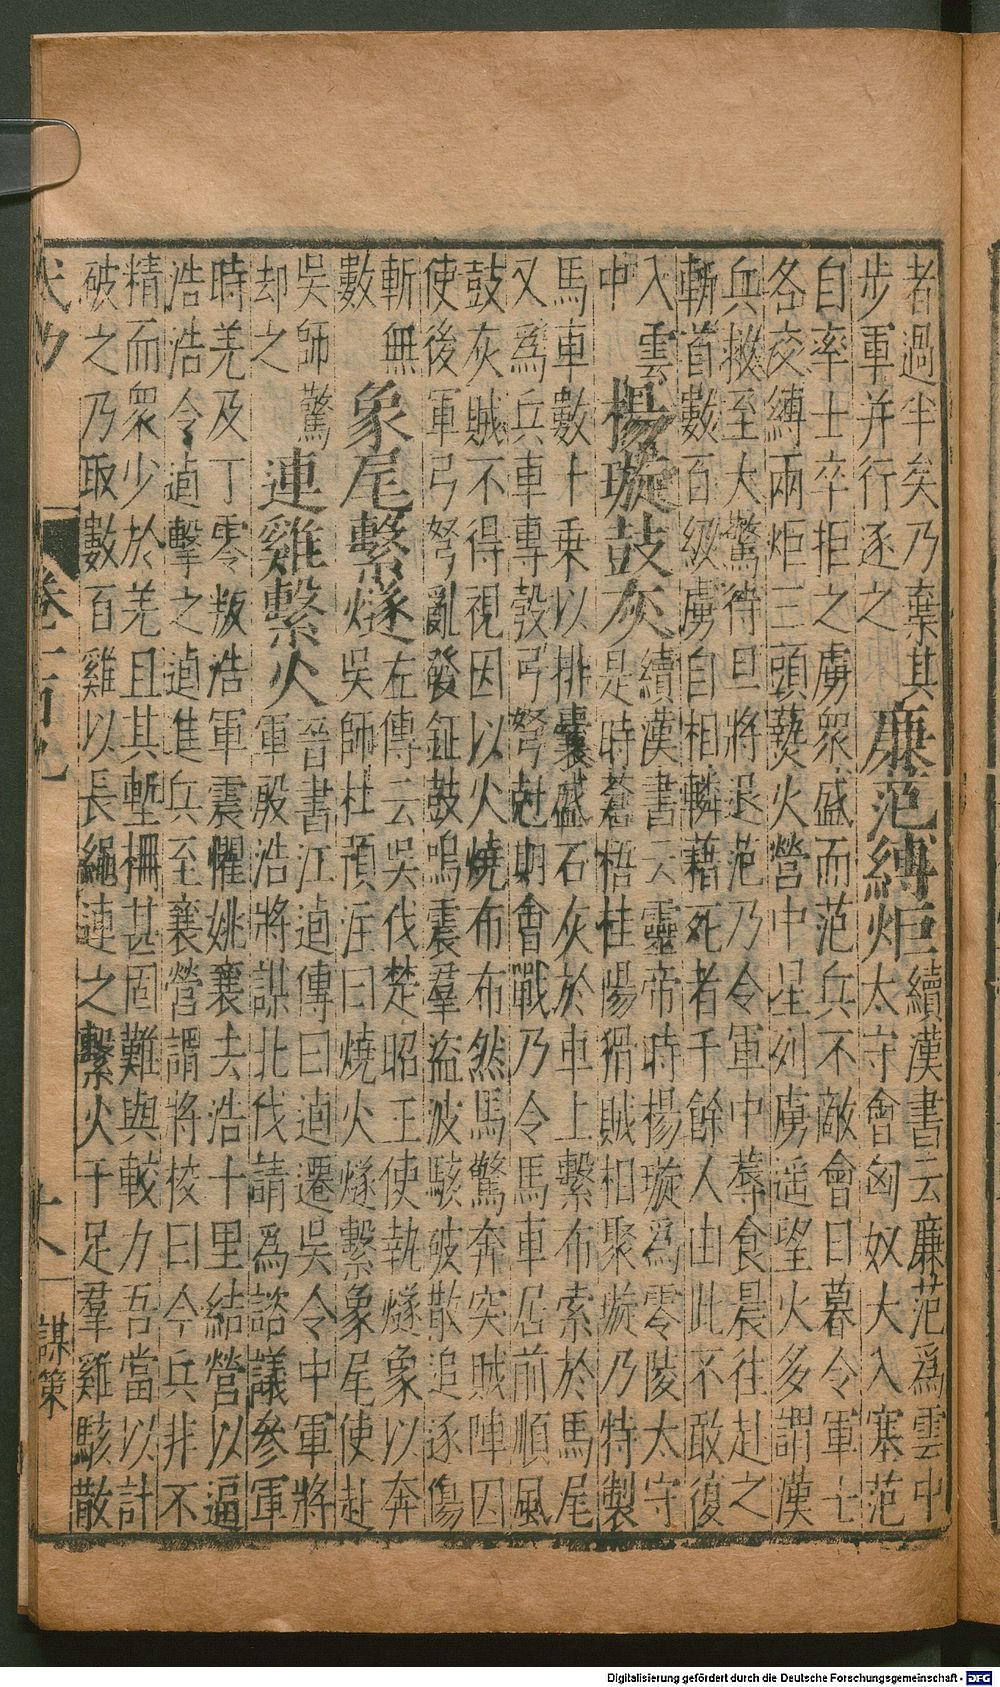 者過半矣乃棄其
步軍并行逐之
廉范縛炬
續漢書云廉范爲雲中
太守會匈奴大入塞范
自率士卒拒之虜衆盛而范兵不敵會日暮令軍士
各交縛兩炬三頭爇火營中星列虜遥望火多謂漢
兵救至大驚待旦將退范乃令軍中蓐食晨往赴之
斬首數百級虜自相轔藉死者千餘人由此不敢復
入雲
中
楊璇鼓灰
續漢書云靈帝時楊璇爲零陵太守
是時蒼梧桂陽猾賊相聚璇乃特製
馬車數十乗以排囊盛石灰於車上繫布索於馬尾
又爲兵車專彀弓弩尅期會戰乃令馬車居前順風
鼓灰賊不得視因以火燒布布然馬驚奔突賊陣因
使後軍弓弩亂發鉦鼓鳴震羣盗波駭破散追逐傷
斬無
數
象尾繫燧
左傳云吳伐楚昭王使執燧象以奔
吳師杜預注曰燒火燧繫象尾使赴
吳師驚
却之
連雞繫火
晉書江逌傳曰逌遷吳令中軍將
軍殷浩將謀北伐請爲諮議參軍
時羌及丁零叛浩軍震懼姚襄去浩十里結營以逼
浩浩令逌擊之逌進兵至襄營謂將校曰今兵非不
精而衆少於羌且其塹柵甚固難與較力吾當以計
破之乃取數百雞以長繩連之繫火于足羣雞駭散
卷一百九
十八
謀策
Digitalisierung gefördert durch die Deutsche Forschungsgemeinschaft - DFG